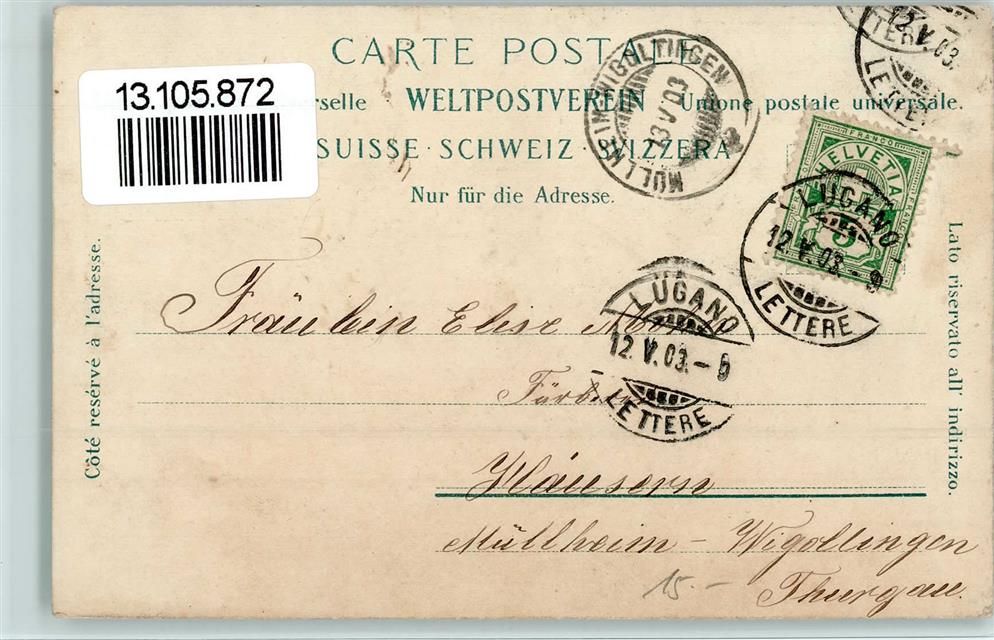 CARTE POSTALE
13.105.872
WELTPOSTVEREIN Unione postale universale.
SUISSE · SCHWEIZ · SVIZZERA
Nur für die Adresse.
MÜLLHEIM-WIGOLTINGEN
13 V 03
LETTERE
12. V. 03.
LETTERE
FRANCO
HELVETIA
FRANCO
5
LUGANO
12. V. 03. - 9
LETTERE
LUGANO
12. V. 03. - 9
LETTERE
Côté resérvé à l'adresse.
Lato riservato all' indirizzo.
Fräulein Elise
Häusern
Müllheim - Wigoltingen
Thurgau.
15.-